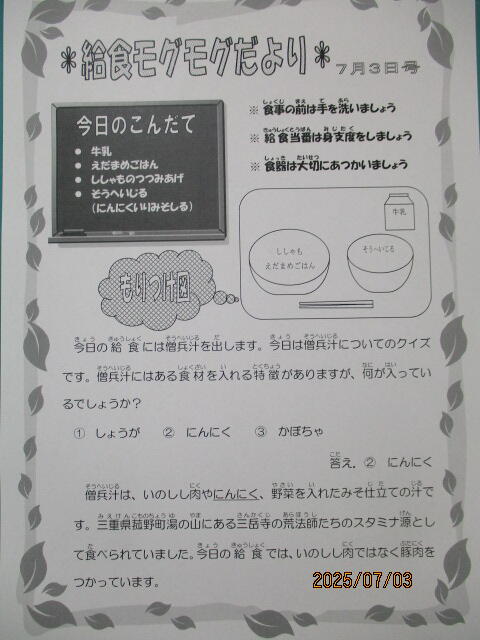 ＊給食モグモグだより＊ 7月3日号
今日のこんだて
● 牛乳
● えだまめごはん
● ししゃものつつみあげ
● そうへいじる
（にんにくいりみそしる）
※ 食事の前は手を洗いましょう
※ 給食当番は身支度をしましょう
※ 食器は大切にあつかいましょう
もりつけ図
牛乳
ししゃも
えだまめごはん
そうへいじる
今日の給食には僧兵汁を出します。今日は僧兵汁についてのクイズ
です。僧兵汁にはある食材を入れる特徴がありますが、何が入ってい
るでしょうか？
① しょうが ② にんにく ③ かぼちゃ
答え．② にんにく
僧兵汁は、いのしし肉やにんにく、野菜を入れたみそ仕立ての汁で
す。三重県菰野町湯の山にある三岳寺の荒法師たちのスタミナ源とし
て食べられていました。今日の給食では、いのしし肉ではなく豚肉を
つかっています。
2025/07/03